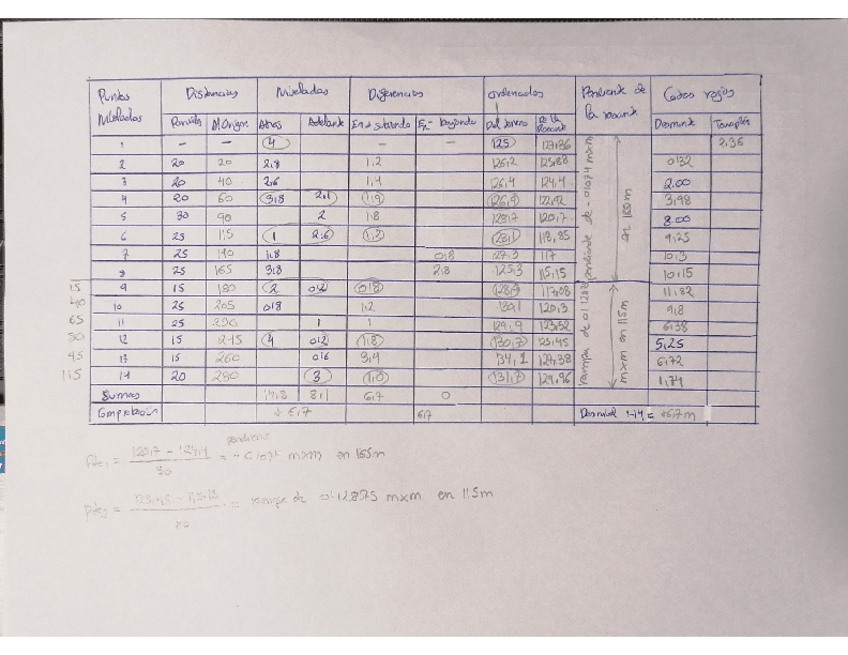 Puntos Nivelados Distancias Niveladas Diferencias ordenadas Pendiente de la rasante Cotas rojas
Parciales Al Origen Atras Adelante En + subiendo En - bajando Del terreno De la Rasante Desmonte Terraplén
1 - - 4 - - 125 127,36 2,36
2 20 20 2,8 1,2 126,2 125,88 0,32
3 20 40 2,6 1,4 126,4 124,4 2.00
4 20 60 3,8 2,1 1,9 126,9 122,92 3,98
5 30 90 2 1,8 128,7 120,7 8.00
6 25 115 1 2,6 1,2 128,1 118,85 9,25
7 25 140 1,8 0,8 27,3 117 10,3
8 25 165 3,8 2,8 125,3 115,15 10,15
15 9 15 180 2 0,2 0,8 117,08 11,82
40 10 25 205 0,8 1,2 120,3 9,8
65 11 25 230 1 1 129,9 123,52 6,38
12 15 245 4 0,2 1,8 130,7 5,25
13 15 260 0,6 3,4 134,1 6,72
115 14 20 280 3 1,0 131,7 129,96 1,74
pendiente de - 0,074 mxm en 165m
rampa de mxm en 115m
Sumas 14,8 8,1 6,7 0
Comprobación 6,7 6,7 Desnivel 1-14 = +6,7 m
pendiente
Pte₁ = 120,7 - 124,4 / 50 = mxm en 165m
Pte₂ = = rampa de 0,12875 mxm en 115m